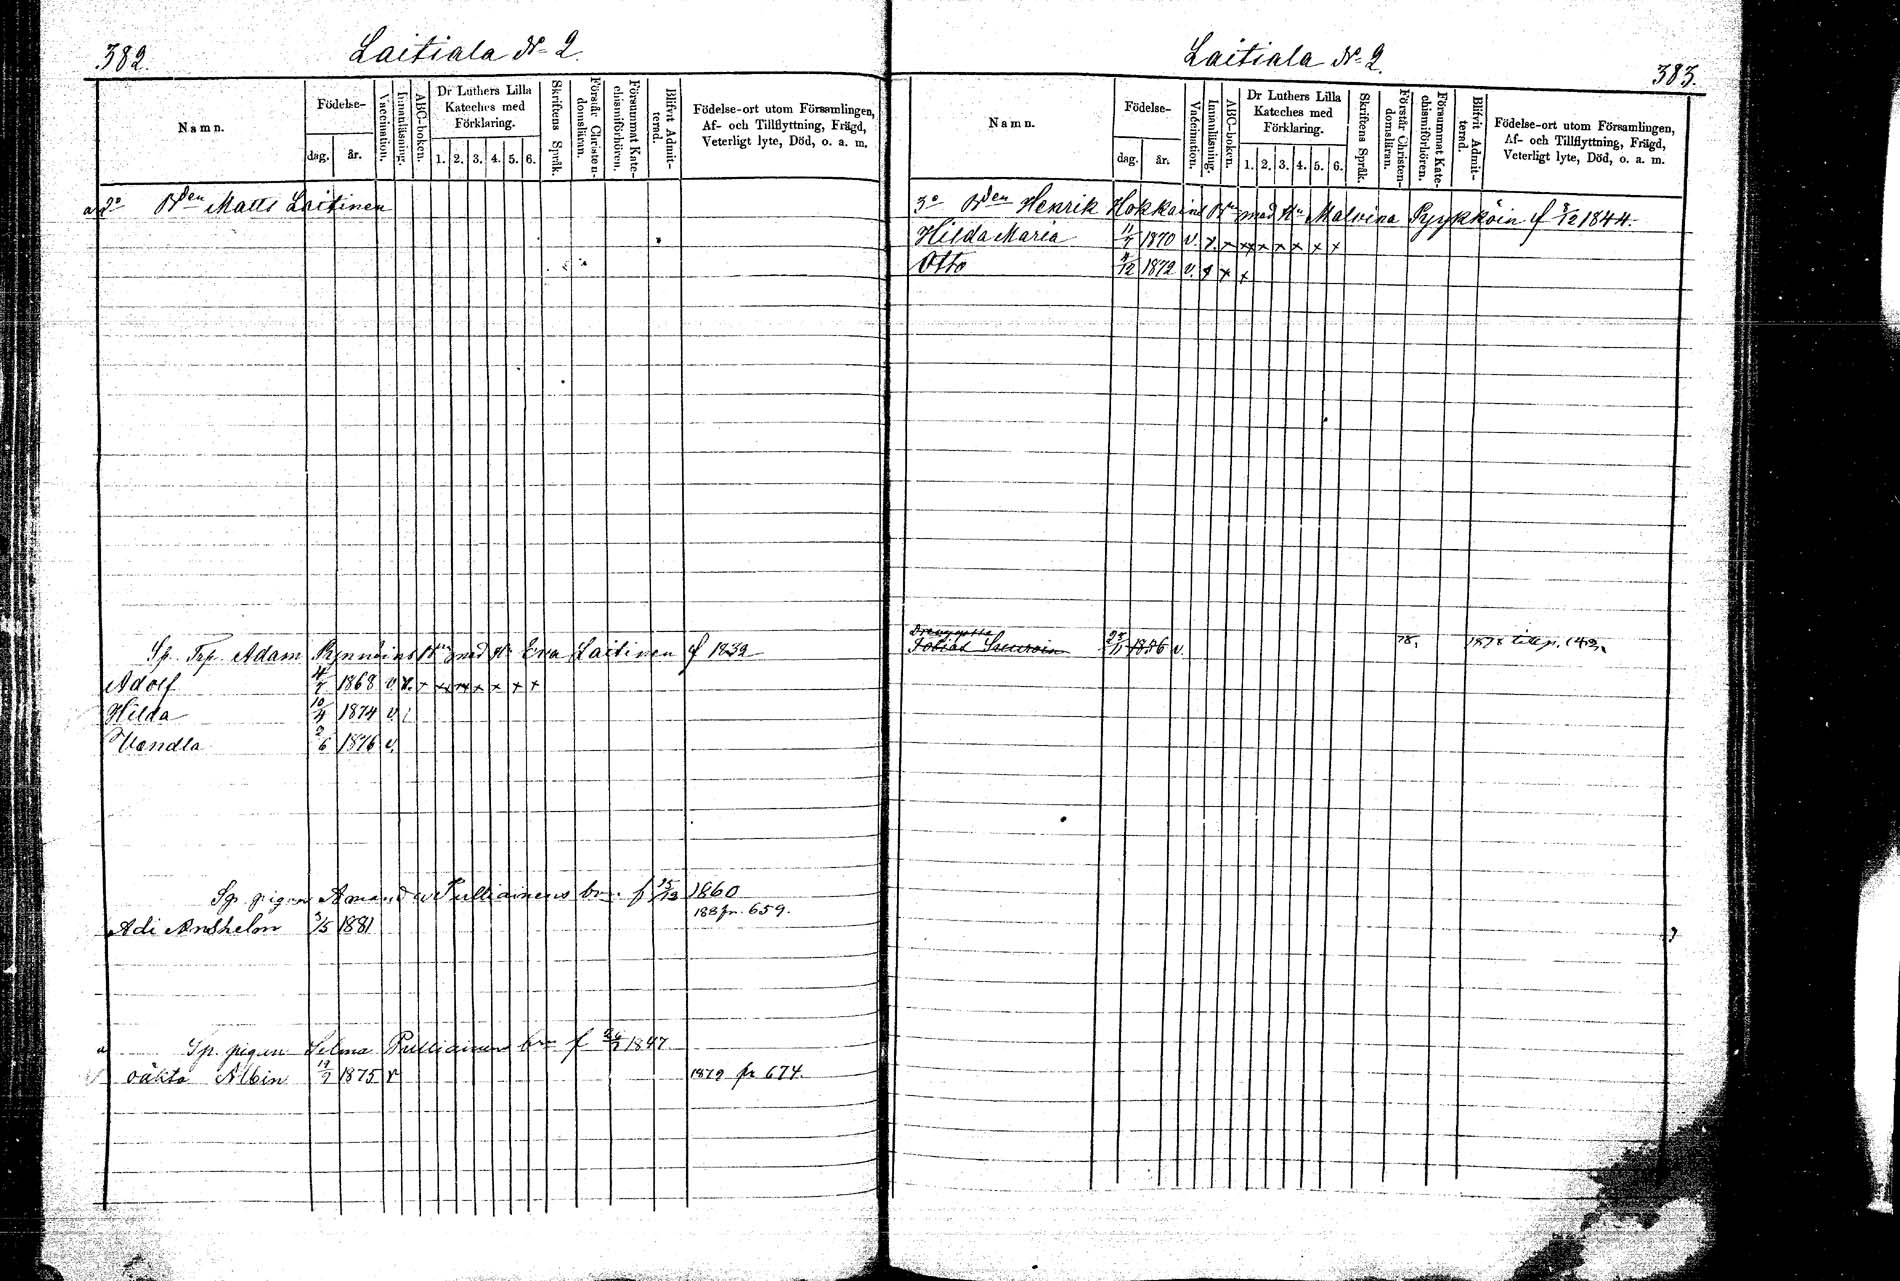 382.
Laitiala No 2.
Namn.
Födelse-
dag.
år.
Vaccination.
Innanläsning.
ABC-boken.
Dr Luthers Lilla
Kateches med
Förklaring.
1. 2. 3. 4. 5. 6.
Skriftens Språk.
Förstår Christen-
domsläran.
Försummat Kate-
chismiförhören.
Blifvit Admit-
terad.
Födelse-ort utom Församlingen,
Af- och Tillflyttning, Frägd,
Veterligt lyte, Död, o. a. m.
a 2o Bden Matts Laitinen
Sp. Trp. Adam Rynnöins Bn med Hn Eva Laitinen f 1839
Adolf 4/7 1868 v. x. x x x x x x x x
Hilda 10/4 1874 v.
Wendla 2/6 1876 v.
Sp. pigan Amanda Pulliainens bn f 25/12 1860
Adi Anshelm 3/5 1881 188 fr. 659.
a Sp. pigan Selma Pulliainens bn f 26/7 1847
oäkta Albin 19/9 1875 v 1879 fr 674.
Laitiala No 2.
383.
Namn.
Födelse-
dag.
år.
Vaccination.
Innanläsning.
ABC-boken.
Dr Luthers Lilla
Kateches med
Förklaring.
1. 2. 3. 4. 5. 6.
Skriftens Språk.
Förstår Christen-
domsläran.
Försummat Kate-
chismiförhören.
Blifvit Admit-
terad.
Födelse-ort utom Församlingen,
Af- och Tillflyttning, Frägd,
Veterligt lyte, Död, o. a. m.
3o Bden Henrik Hokkains Bn med Hn Malvina Pyykköin f 8/12 1844.
Hilda Maria 11/7 1870 v. x. x x x x x x x x
Otto 4/12 1872 v. x x x
Tobias 23/11 1856 v. 78, 1878